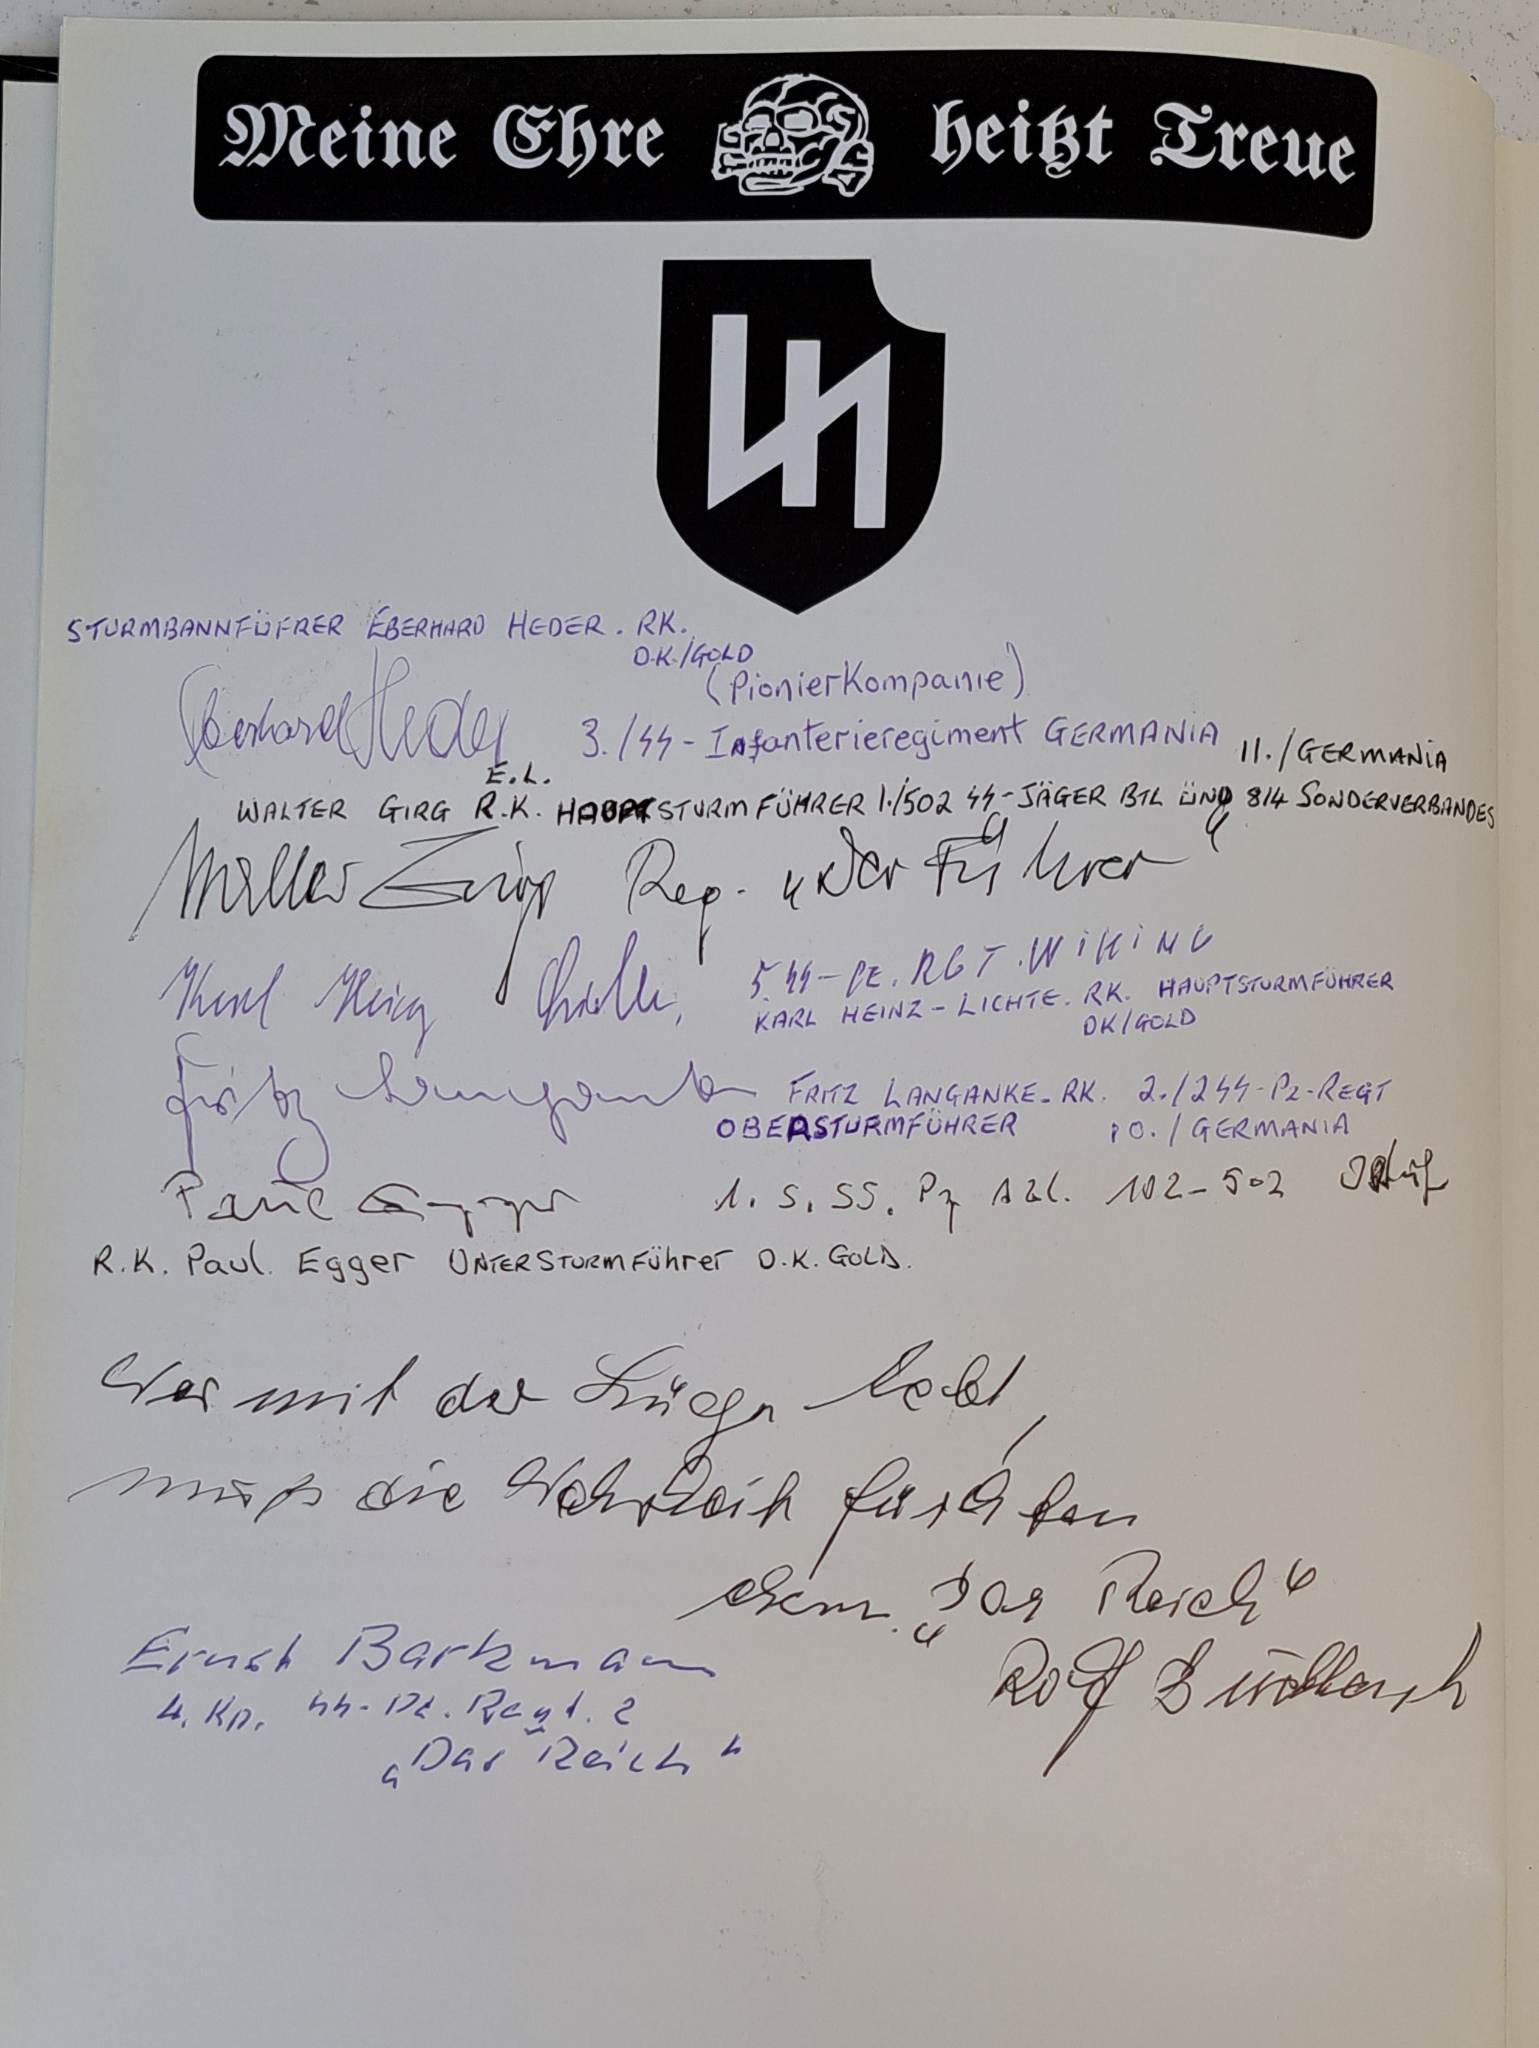 Meine Ehre heißt Treue
STURMBANNFÜFRER EBERHARD HEDER. RK.
D.K./GOLD
(PionierKompanie)
Eberhard Heder 3./SS-Infanterieregiment GERMANIA 11./GERMANIA
E.L.
WALTER GIRG R.K. HAUPTSTURMFÜHRER 1./502 SS-JÄGER BTL ÜND 814 SONDERVERBANDES
Walter Girg Reg. „Der Führer“
Karl Heinz Lichte, 5. SS-PZ. RGT. WIKING
KARL HEINZ-LICHTE. RK. HAUPTSTURMFÜHRER
DK/GOLD
Fritz Langanke FRITZ LANGANKE. RK. 2./2 SS-Pz-REGT
OBERSTURMFÜHRER 10./GERMANIA
Paul Egger 1. s. SS. Pz Abt. 102-502 Ostuf
R.K. Paul. Egger UNTERSTURMFÜHRER D.K. GOLD.
Wer mit der Lüge lebt,
muß die Wahrheit fürchten
ehem. „Das Reich“
Ernst Barkmann
4. Kp. SS-Pz. Regt. 2
„Das Reich“
Rolf